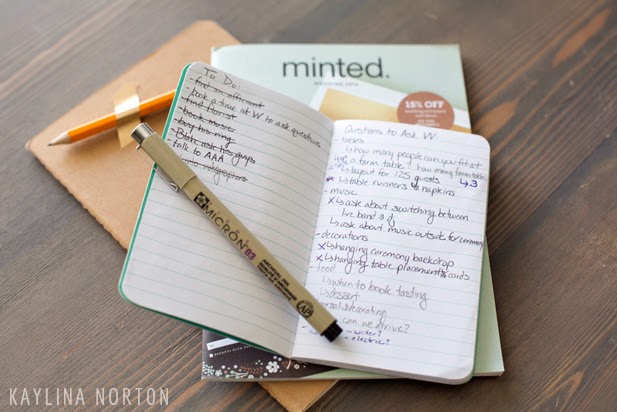 minted.
15% OFF
To Do:
- find an officiant
- book a time at W to ask questions
- find florist
- book music
- buy his ring
- Blair ask his guys
- talk to AAA
MICRON 03
Questions to Ask W:
- tables
↳ how many people can you fit at
a farm table? how many farm tables
↳ 3
↳ layout for 125 guests
↳ table runners & napkins
- music
x ↳ ask about switching between
live band & dj
↳ ask about music outside for ceremony
- decorations
x ↳ hanging ceremony backdrop
x ↳ hanging table placement cards
- food
↳ when to book tasting
↳ dessert
decorating
can we arrive?
- water?
- electric?
KAYLINA NORTON